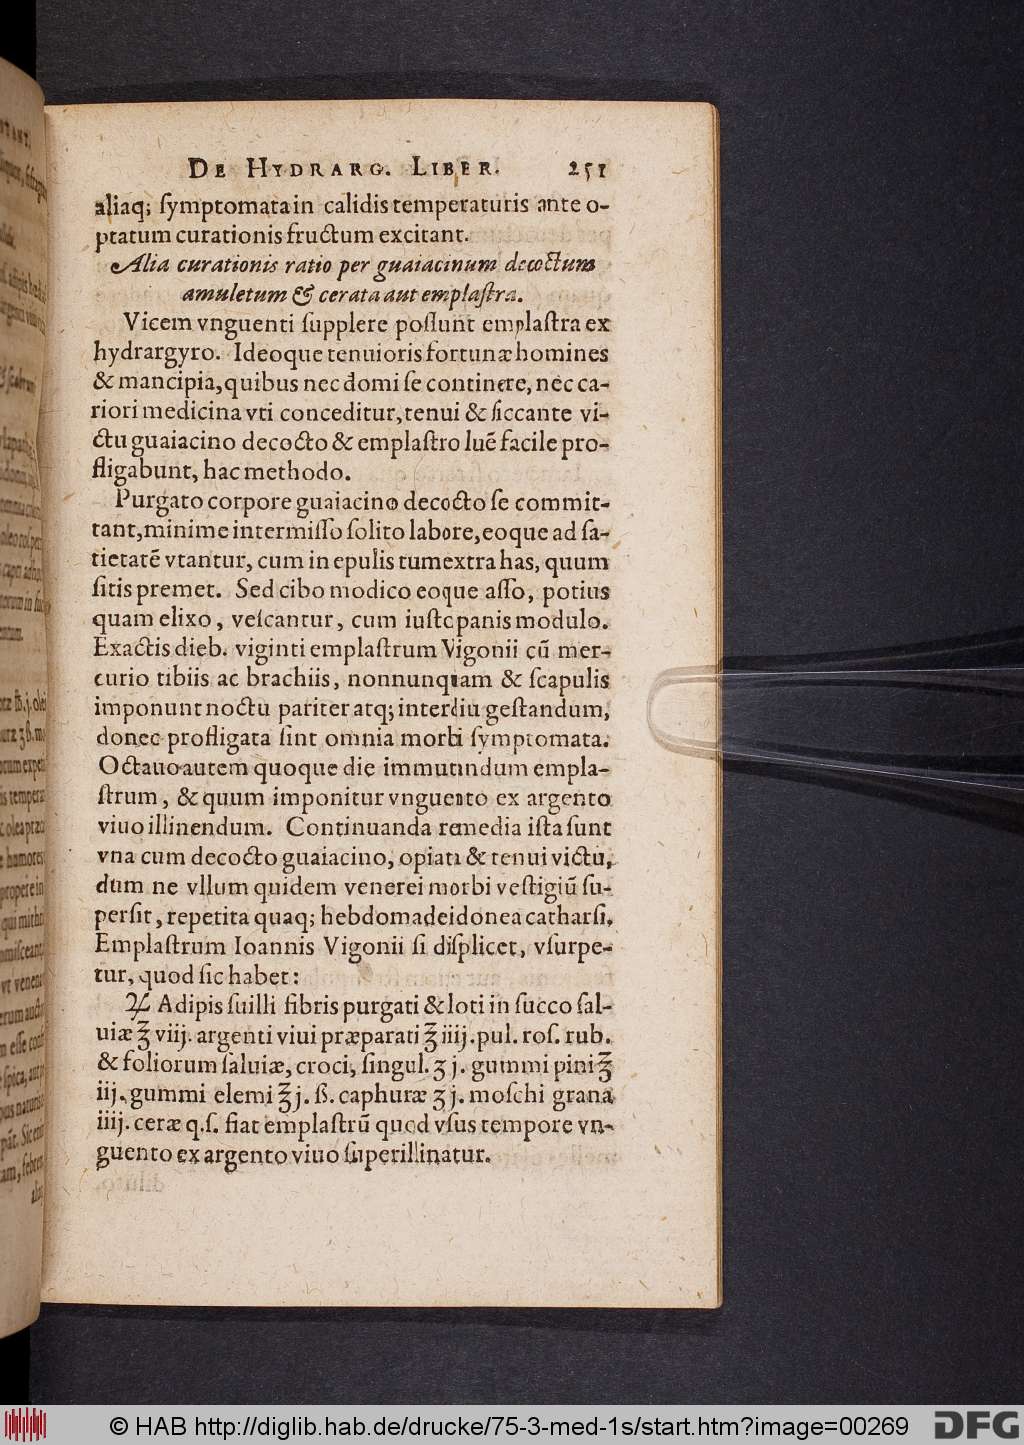 DE HYDRARG. LIBER. 251
aliaq; ſymptomata in calidis temperaturis ante o-
ptatum curationis fructum excitant.
Alia curationis ratio per guaiacinum decoctum
amuletum & cerata aut emplaſtra.
Vicem vnguenti ſupplere poſſunt emplaſtra ex
hydrargyro. Ideoque tenuioris fortunæ homines
& mancipia, quibus nec domi ſe continere, nec ca-
riori medicina vti conceditur, tenui & ſiccante vi-
ctu guaiacino decocto & emplaſtro luē facile pro-
fligabunt, hac methodo.
Purgato corpore guaiacino decocto ſe commit-
tant, minime intermiſſo ſolito labore, eoque ad ſa-
tietatē vtantur, cum in epulis tum extra has, quum
ſitis premet. Sed cibo modico eoque aſſo, potius
quam elixo, veſcantur, cum iuſto panis modulo.
Exactis dieb. viginti emplaſtrum Vigonii cū mer-
curio tibiis ac brachiis, nonnunquam & ſcapulis
imponunt noctu pariter atq; interdiu geſtandum,
donec profligata ſint omnia morbi ſymptomata.
Octauo autem quoque die immutandum empla-
ſtrum, & quum imponitur vnguento ex argento
viuo illinendum. Continuanda remedia iſta ſunt
vna cum decocto guaiacino, opiata & tenui victu,
dum ne vllum quidem venerei morbi veſtigiū ſu-
perſit, repetita quaq; hebdomade idonea catharſi.
Emplaſtrum Ioannis Vigonii ſi diſplicet, vſurpe-
tur, quod ſic habet:
℞ Adipis ſuilli fibris purgati & loti in ſucco ſal-
uiæ ℥ viij. argenti viui præparati ℥ iiij. pul. roſ. rub.
& foliorum ſaluiæ, croci, ſingul. ʒ j. gummi pini ℥
iij. gummi elemi ℥ j. ß. caphuræ ʒ j. moſchi grana
iiij. ceræ q.ſ. fiat emplaſtrū quod vſus tempore vn-
guento ex argento viuo ſuperillinatur.
© HAB http://diglib.hab.de/drucke/75-3-med-1s/start.htm?image=00269
DFG